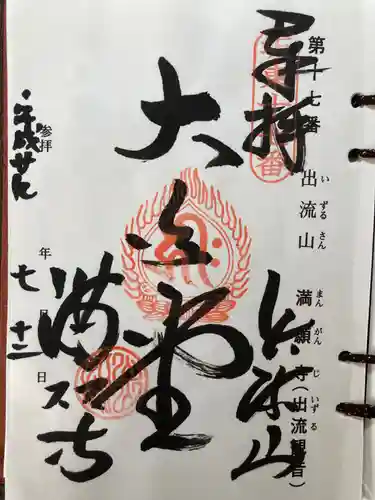 第十七番 出流山 満願寺(出流観音)
いずるさん まんがんじ いずる
奉拝
出流山
大悲堂
満願寺
参拝 年 月 日
平成廿九
七 十二